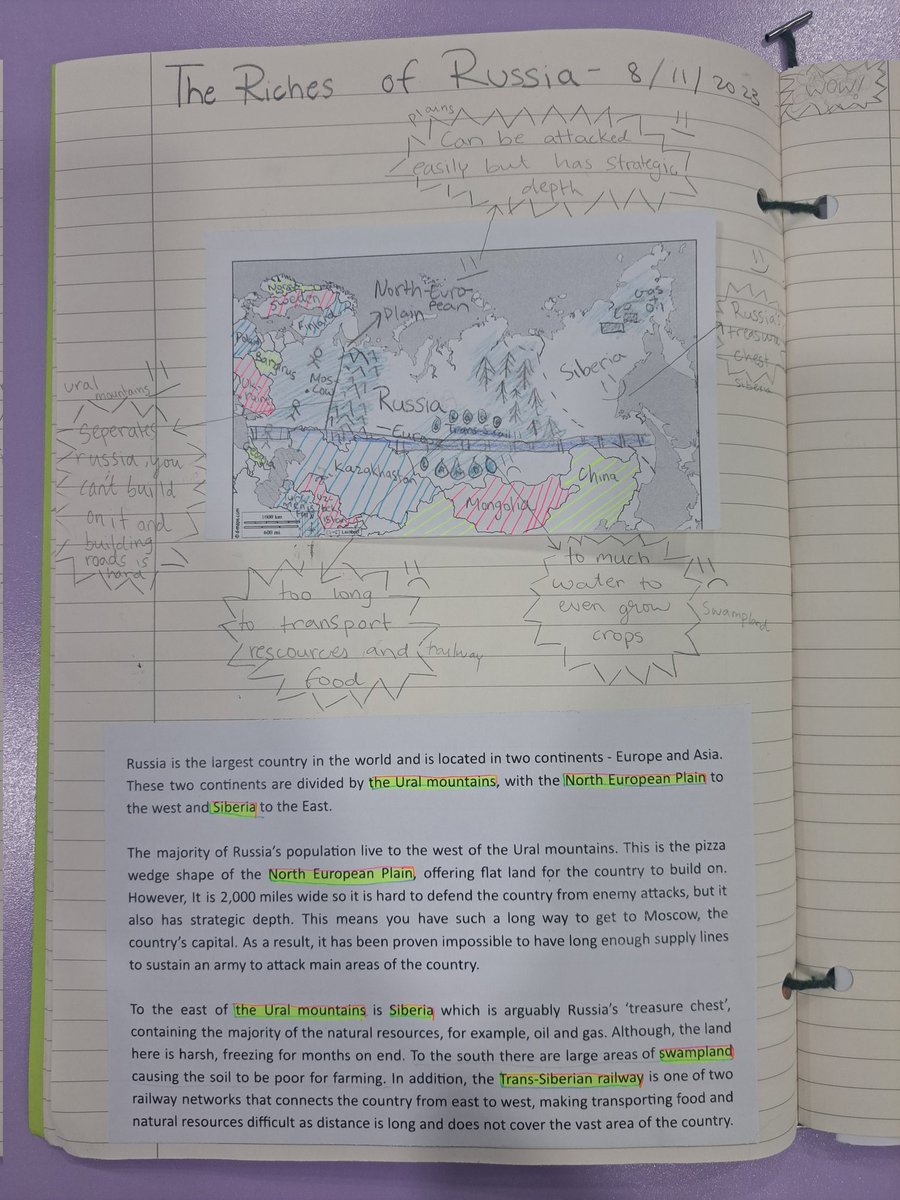 The Riches of Russia - 8/11/2023
WOW!
plains
Can be attacked
easily but has strategic
depth
Sweden
Finland
North-Euro
pean
Plain
Gas
oil
Russia's
treasure
chest
siberia
Siberia
Mos-
cow
Russia
Trans-S rail
Euro
Kazakhastan
Mongolia
China
ural
mountains
Seperates
russia, you
can't build
on it and
building
roads is
hard
1000 km
600 mi
too long
to transport
rescources and
food
railway
to much
water to
even grow
crops
Swampland
Russia is the largest country in the world and is located in two continents - Europe and Asia.
These two continents are divided by the Ural mountains, with the North European Plain to
the west and Siberia to the East.
The majority of Russia's population live to the west of the Ural mountains. This is the pizza
wedge shape of the North European Plain, offering flat land for the country to build on.
However, It is 2,000 miles wide so it is hard to defend the country from enemy attacks, but it
also has strategic depth. This means you have such a long way to get to Moscow, the
country's capital. As a result, it has been proven impossible to have long enough supply lines
to sustain an army to attack main areas of the country.
To the east of the Ural mountains is Siberia which is arguably Russia's 'treasure chest',
containing the majority of the natural resources, for example, oil and gas. Although, the land
here is harsh, freezing for months on end. To the south there are large areas of swampland
causing the soil to be poor for farming. In addition, the Trans-Siberian railway is one of two
railway networks that connects the country from east to west, making transporting food and
natural resources difficult as distance is long and does not cover the vast area of the country.